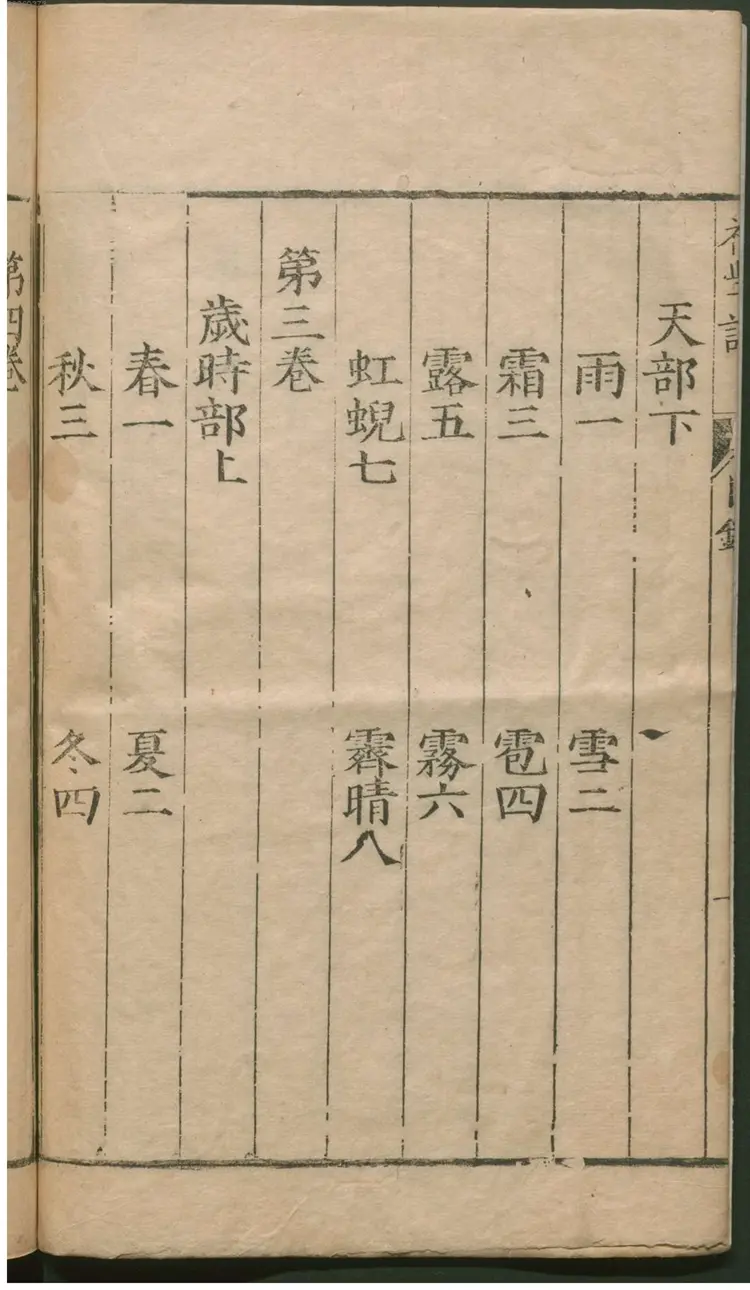 初學記
目錄
天部下
雨一 雪二
霜三 雹四
露五 霧六
虹蜺七 霽晴八
第三卷
歲時部上
春一 夏二
秋三 冬四
第四卷